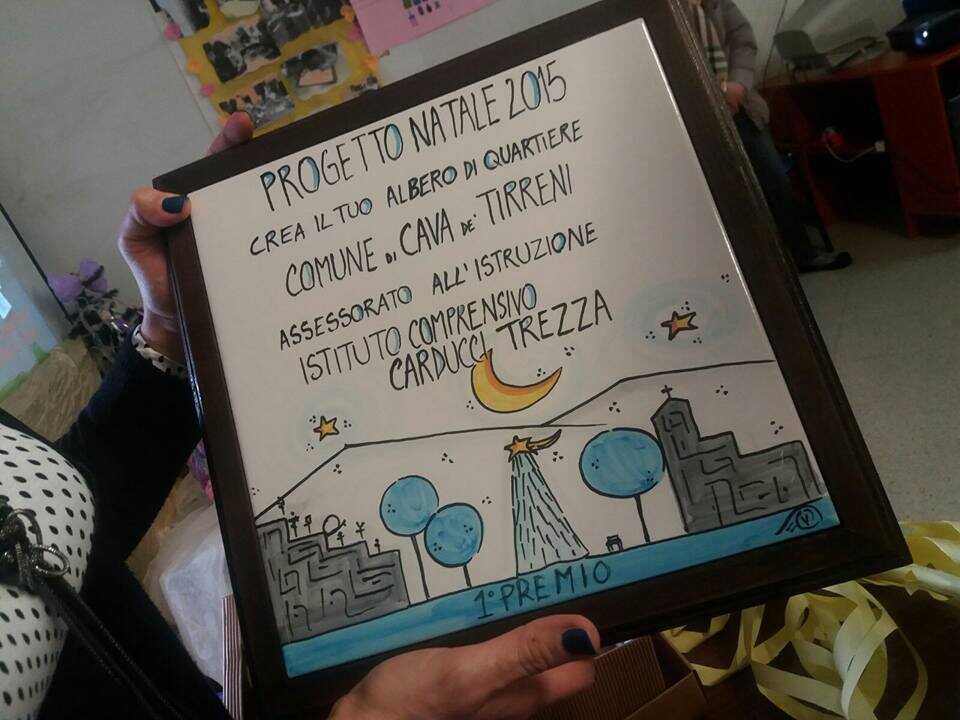 PROGETTO NATALE 2015
CREA IL TUO ALBERO DI QUARTIERE
COMUNE DI CAVA DE' TIRRENI
ASSESSORATO ALL'ISTRUZIONE
ISTITUTO COMPRENSIVO
CARDUCCI TREZZA
1° PREMIO